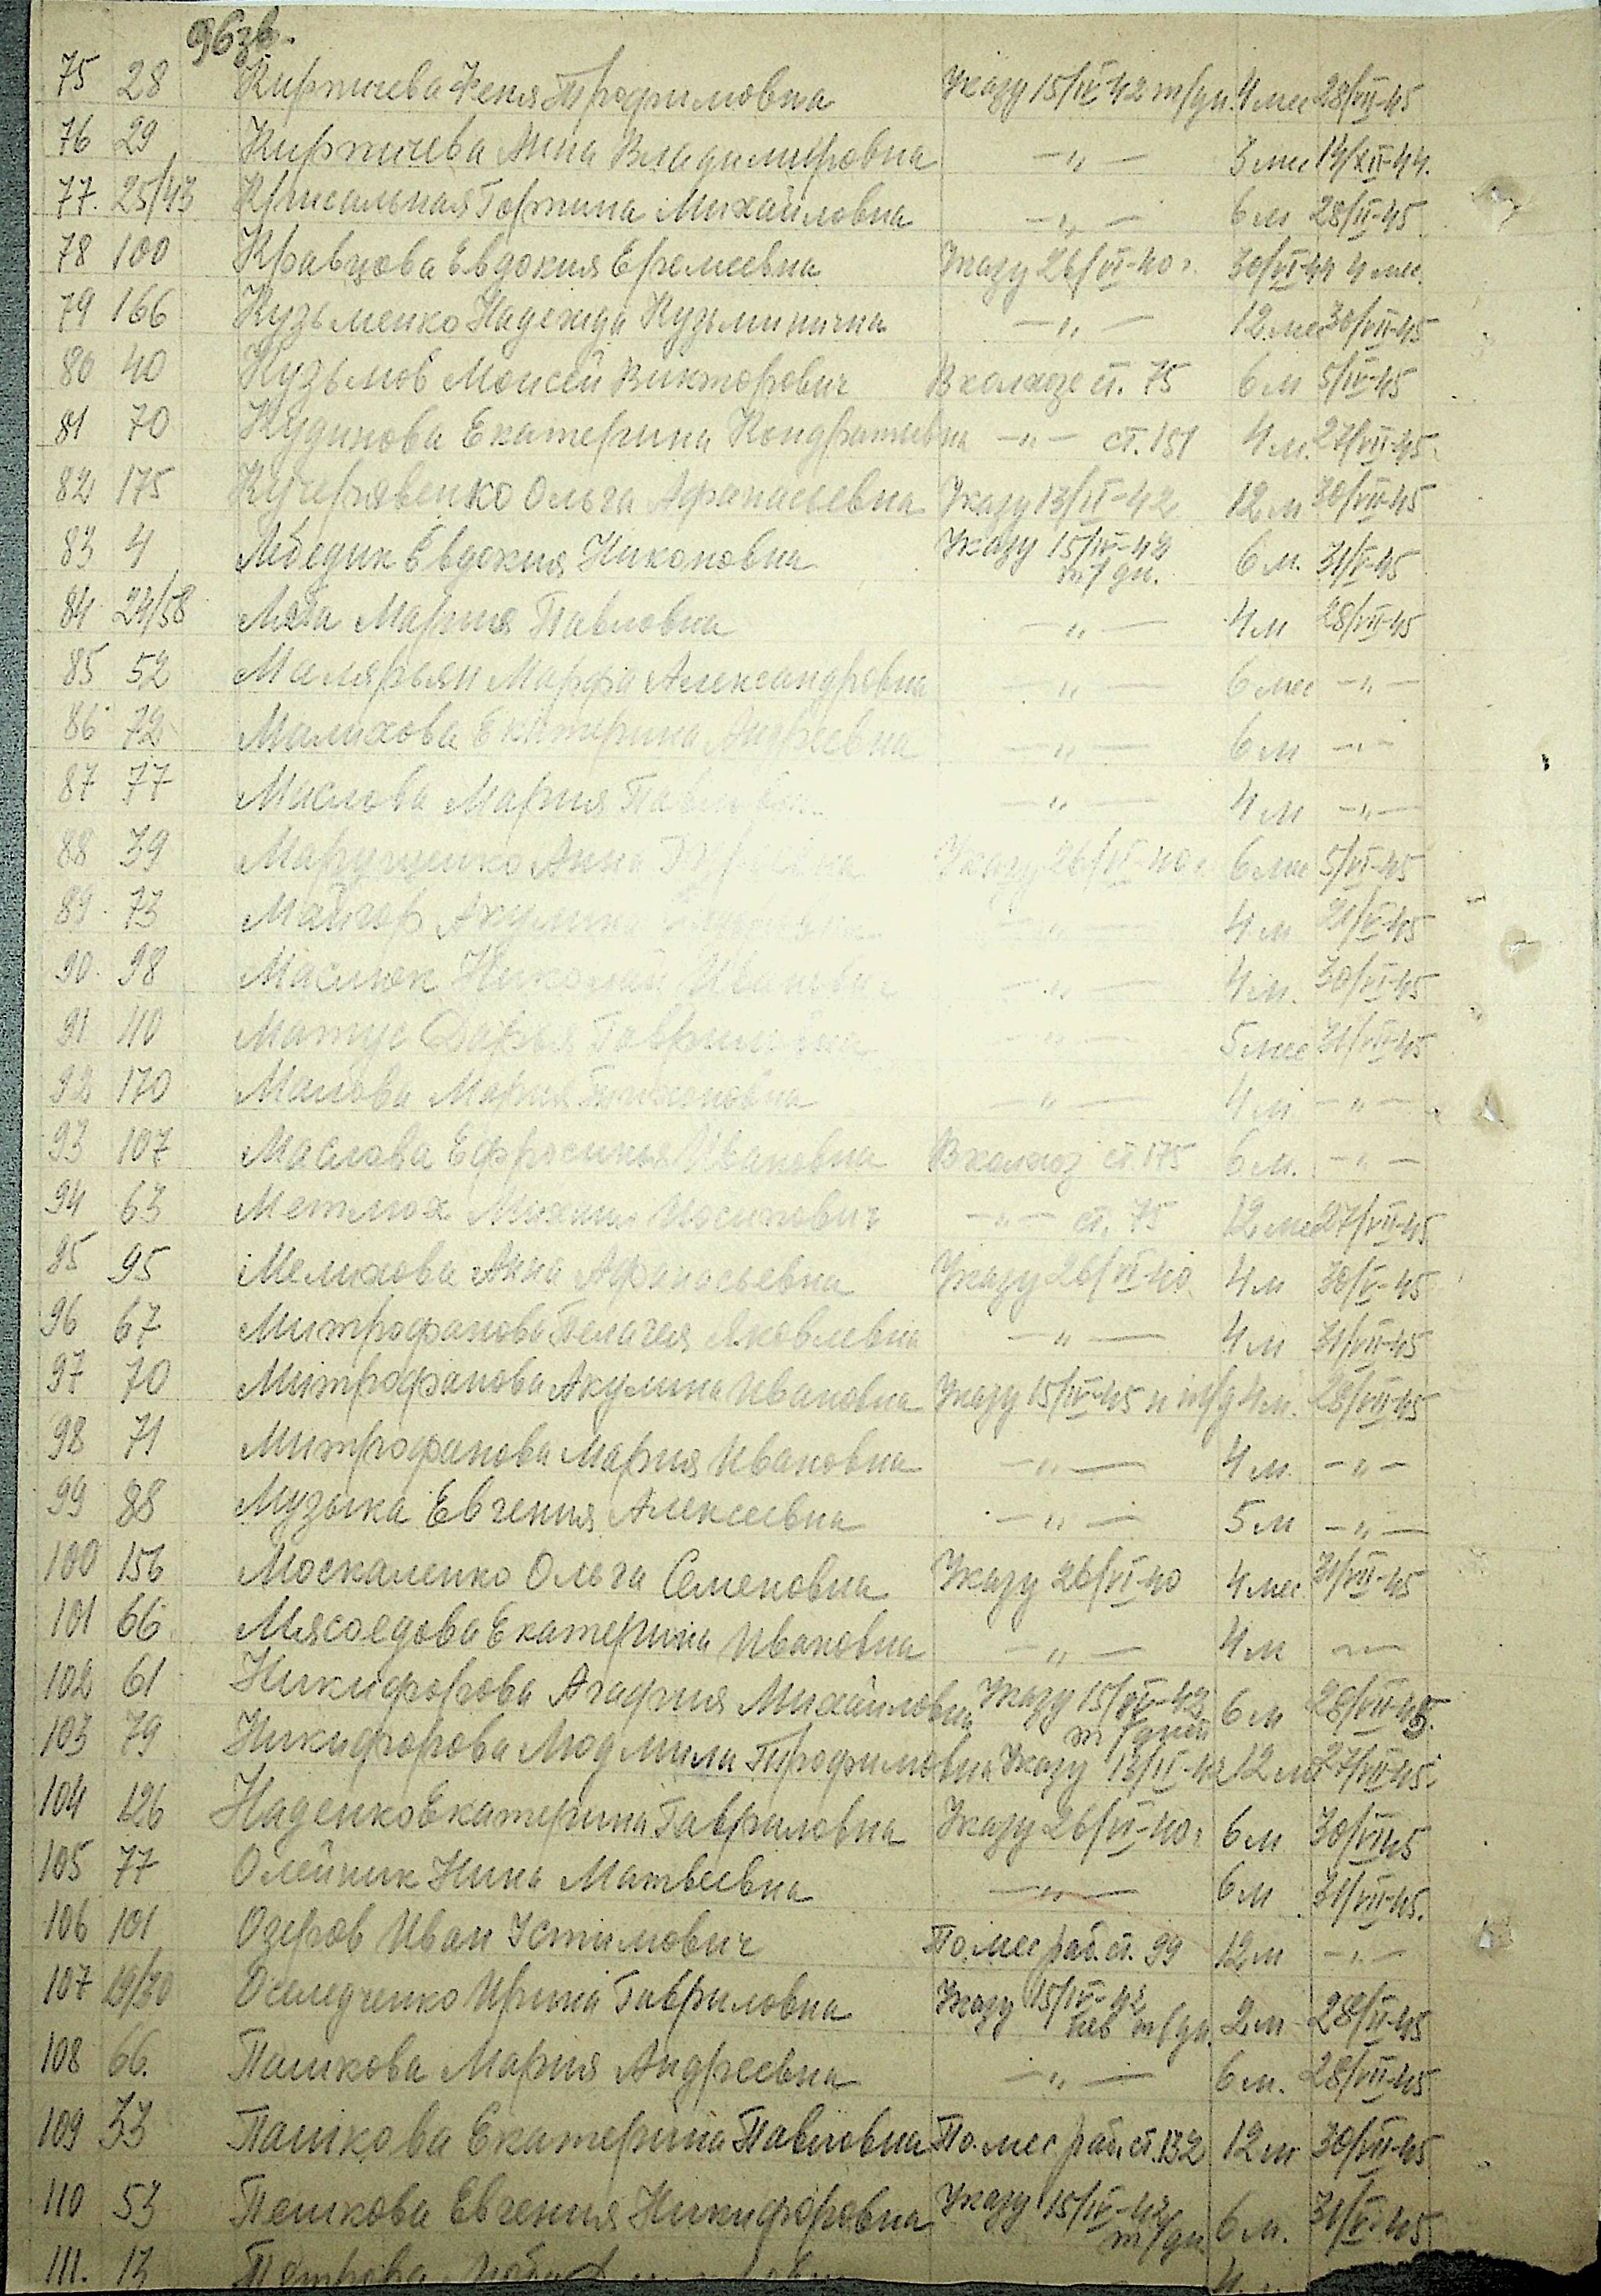 96 зв.
75 28 Кирпичева Феня Трофимовна Указу 15/IV-42 т/дн. 4 мес 28/VII-45
76 29 Кирпичева Анна Владимировна —„— 3 мес 19/XII-44.
77. 25/43 Горпина Михайловна —„— 6 м 28/VI-45
78 100 Кравцова Евдокия Еремеевна Указу 26/VI-40 г. 30/VI-44 4 мес.
79 166 Кузьменко Надежда Кузьминична —„— 12 мес 30/VII-45
80 40 Кузьмов Моисей Викторович В колхозе ст. 75 6 м 5/IV-45
81 70 Кудинова Екатерина Кондратьевна —„— ст. 181 4 м. 27/VII-45
82 175 Кучерявенко Ольга Афанасьевна Указу 13/II-42 12 м 30/VII-45
83 4 Лебедик Евдокия Никоновна Указу 15/IV-42 6 м. 31/V-45
т/дн.
84 24/58 Мария Павловна —„— 4 м 28/VII-45
85 52 Марфа Александровна —„— 6 мес —„—
86 72 Малихова Екатерина Андреевна —„— 6 м —„—
87 77 Маслова Мария —„— 4 м —„—
88 39 Марущенко Анна Указу 26/VI-40 г. 6 мес 5/VI-45
89. 73 Майгор Акулина —„— 4 м 31/V-45
90. 98 Маслюк Николай Иванович —„— 4 м. 30/VI-45
91 110 Матус Дарья Гавриловна —„— 5 мес 31/VII-45
92 170 Малова Мария Тихоновна —„— 4 м —„—
93 107 Маслова Ефросинья Ивановна В колхоз ст. 175 6 м. —„—
94 63 Метлюх Михаил Иосипович —„— ст. 75 12 мес 27/VII-45
95 95 Мелихова Анна Афанасьевна Указу 26/VI-40 4 м 30/V-45
96 67 Митрофанова Пелагея Яковлевна —„— 4 м 31/VII-45
97 70 Митрофанова Акулина Ивановна Указу 15/IV-45 н т/д 4 м. 28/VII-45
98 71 Митрофанова Мария Ивановна —„— 4 м. —„—
99 88 Музыка Евгения Алексеевна —„— 5 м —„—
100 156 Москаленко Ольга Семеновна Указу 26/VI-40 4 мес. 31/VII-45
101 66 Мясоедова Екатерина Ивановна —„— 4 м —„—
102 61 Никифорова Агафия Михайловна Указу 15/IV-42 6 м 28/VII-45.
т/дней
103 79 Никифорова Людмила Трофимовна Указу 13/II-42 12 м 27/VII-45
104 126 Наденко Екатерина Гавриловна Указу 26/VI-40 г 6 м 30/VII 45
105 77 Олейник Нина Матвеевна —„— 6 м 31/VII-45.
106 101 Озеров Иван Устимович По мес раб. ст. 99 12 м —„—
107 19/30 Оселедченко Ирина Гавриловна Указу 15/IV-42 2 м 28/VI-45
т/дн.
108 66. Пашкова Мария Андреевна —„— 6 м. 28/VII-45
109 33 Пашкова Екатерина Павловна По мес раб. ст. 132 12 м 30/VII-45
110 53 Пешкова Евгения Никифоровна Указу 15/IV-42 6 м. 31/V-45
т/дн
111. 13 Петрова